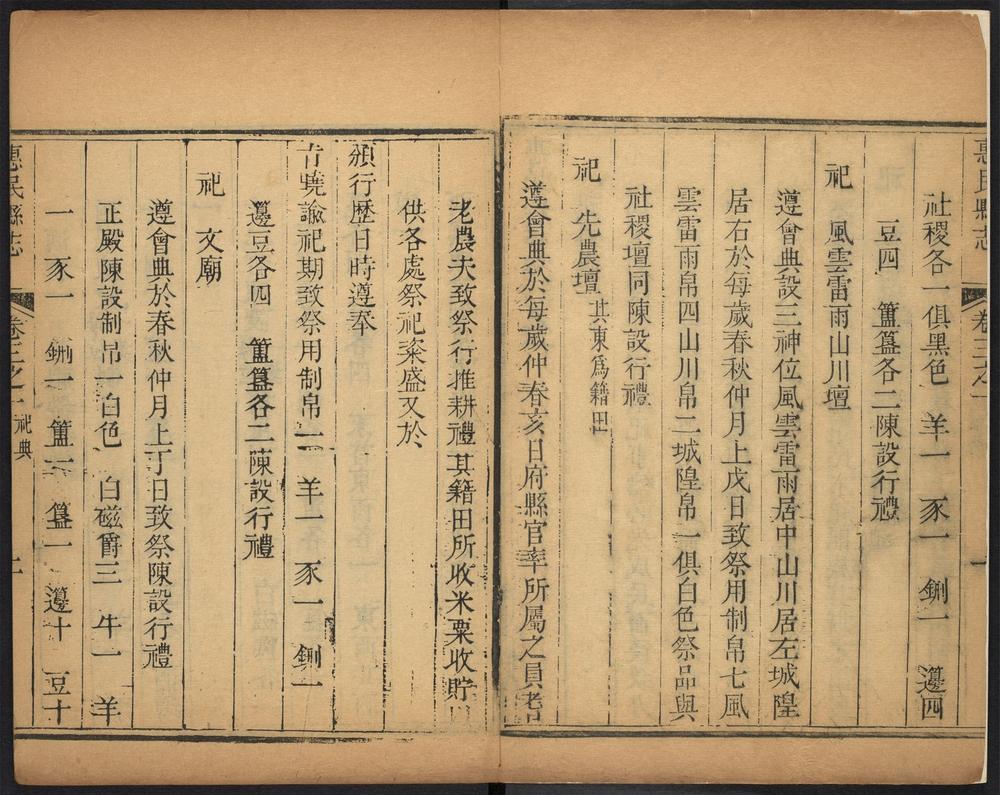 惠民縣志 卷三之一 一
社稷各一俱黑色 羊一 豕一 鉶一 籩四
豆四 簠簋各二陳設行禮
祀 風雲雷雨山川壇
遵會典設三神位風雲雷雨居中山川居左城隍
居右於每歲春秋仲月上戊日致祭用制帛七風
雲雷雨帛四山川帛二城隍帛一俱白色祭品與
社稷壇同陳設行禮
祀 先農壇 其東爲籍田
遵會典於每歲仲春亥日府縣官率所屬之員耆
老農夫致祭行推耕禮其籍田所收米粟收貯
供各處祭祀粢盛又於
頒行歷日時遵奉
旨曉諭祀期致祭用制帛一 羊一 豕一 鉶一
籩豆各四 簠簋各二陳設行禮
祀 文廟
遵會典於春秋仲月上丁日致祭陳設行禮
正殿陳設制帛一白色 白磁爵三 牛一 羊
一 豕一 鉶一 簠一 簋一 籩十 豆十
惠民縣志 卷三之一 祀典 二